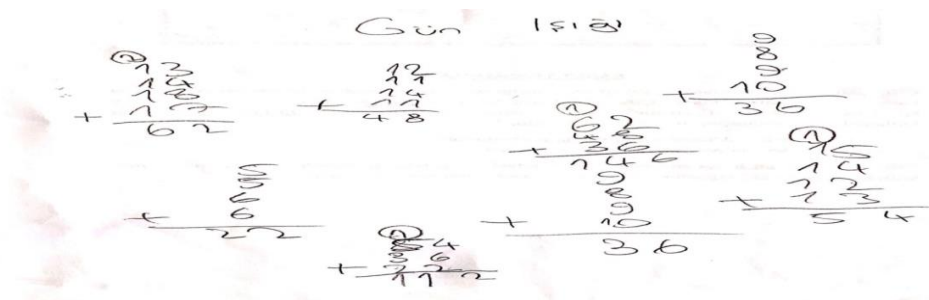 Gün Işığı
②
13
14
18
17
+
62
12
11
14
11
+
48
9
8
9
10
+
36
①
62
48
36
+
146
①
15
14
12
13
+
54
5
5
6
6
+
22
9
8
9
10
+
36
①
54
36
22
+
112